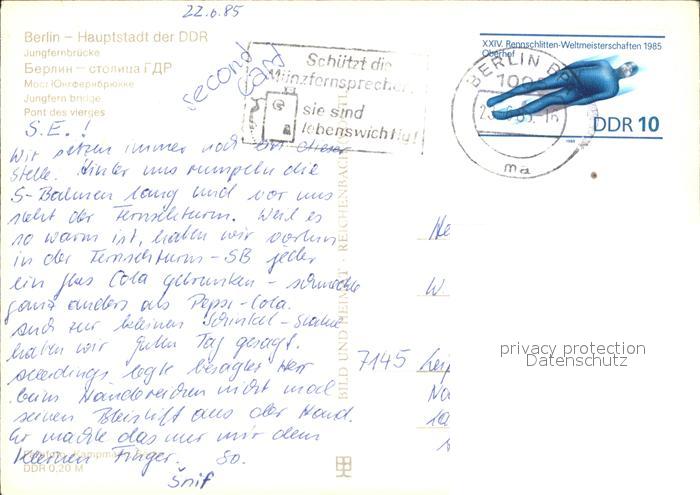 22.6.85
Berlin – Hauptstadt der DDR
Jungfernbrücke
Берлин – столица ГДР
Мост Юнгфернбрюкке
Jungfern bridge
Pont des vierges
second
card
Schützt die
Münzfernsprecher.
sie sind
lebenswichtig!
XXIV. Rennschlitten-Weltmeisterschaften 1985
Oberhof
DDR 10
BERLIN
ma
S.E.!
Wir sitzen immer noch an dieser
Stelle. Hinter uns rumpeln die
S-Bahnen lang und vor uns
steht der Fernsehturm. Weil es
so warm ist, haben wir vorhin
in der Fernsehturm-SB jeder
ein Glas Cola getrunken – schmeckte
ganz anders als Pepsi-Cola.
Auch zur kleinen Schinkel-Statue
haben wir guten Tag gesagt.
Allerdings legte besagter Herr
beim Händereichen nicht mal
seinen Bleistift aus der Hand.
Er machte das nur mit dem
kleinen Finger. So.
Šnif
BILD UND HEIMAT · REICHENBACH
He
W
7145 Leip
No
privacy protection
Datenschutz
DDR 0,20 M